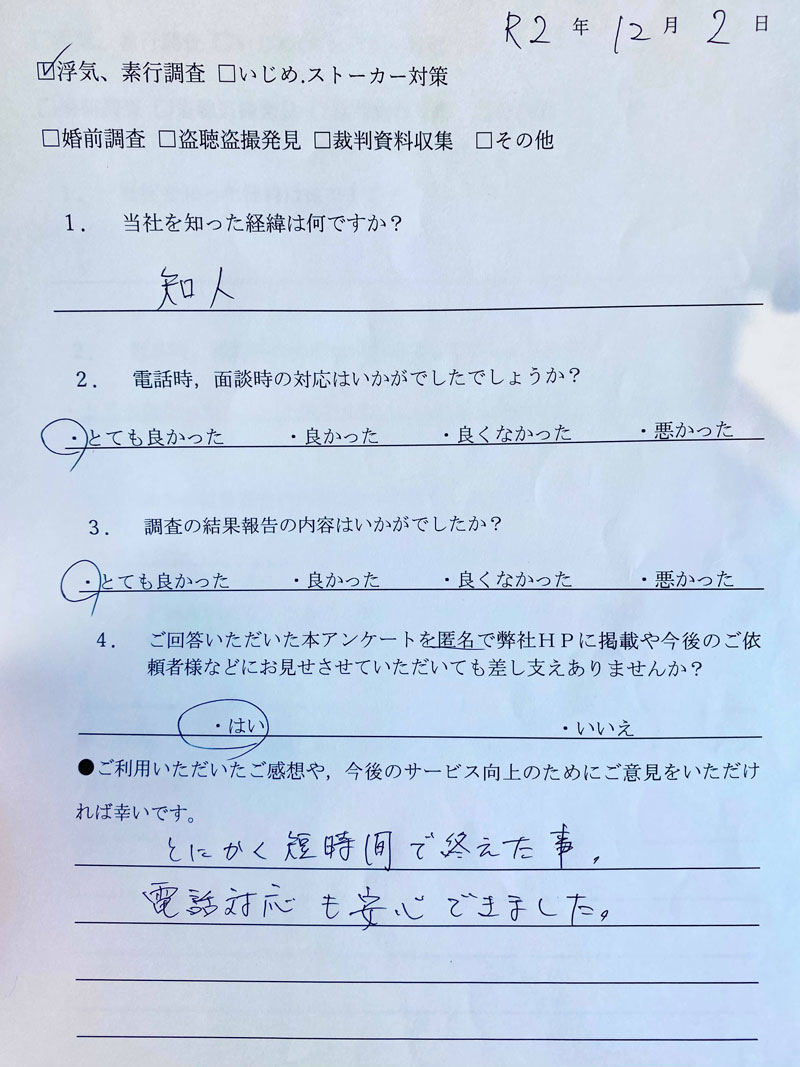 R2 年 12 月 2 日
☑浮気、素行調査 □いじめ.ストーカー対策
□婚前調査 □盗聴盗撮発見 □裁判資料収集 □その他
１． 当社を知った経緯は何ですか？
知人
２． 電話時，面談時の対応はいかがでしたでしょうか？
・とても良かった ・良かった ・良くなかった ・悪かった
３． 調査の結果報告の内容はいかがでしたか？
・とても良かった ・良かった ・良くなかった ・悪かった
４． ご回答いただいた本アンケートを匿名で弊社ＨＰに掲載や今後のご依
頼者様などにお見せさせていただいても差し支えありませんか？
・はい ・いいえ
●ご利用いただいたご感想や，今後のサービス向上のためにご意見をいただけ
れば幸いです。
とにかく短時間で終えた事。
電話対応も安心できました。